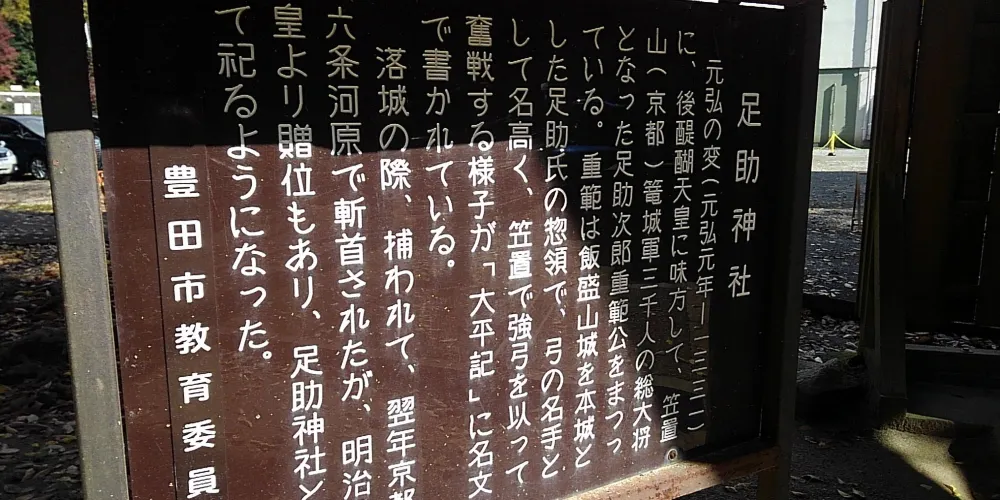 足助神社
元弘の変(元弘元年―一三三一)
に、後醍醐天皇に味方して、笠置
山(京都)篭城軍三千人の総大将
となった足助次郎重範公をまつっ
ている。重範は飯盛山城を本城と
した足助氏の惣領で、弓の名手と
して名高く、笠置で強弓を以って
奮戦する様子が「大平記」に名文
で書かれている。
落城の際、捕われて、翌年京都
六条河原で斬首されたが、明治
皇より贈位もあり、足助神社と
て祀るようになった。
豊田市教育委員